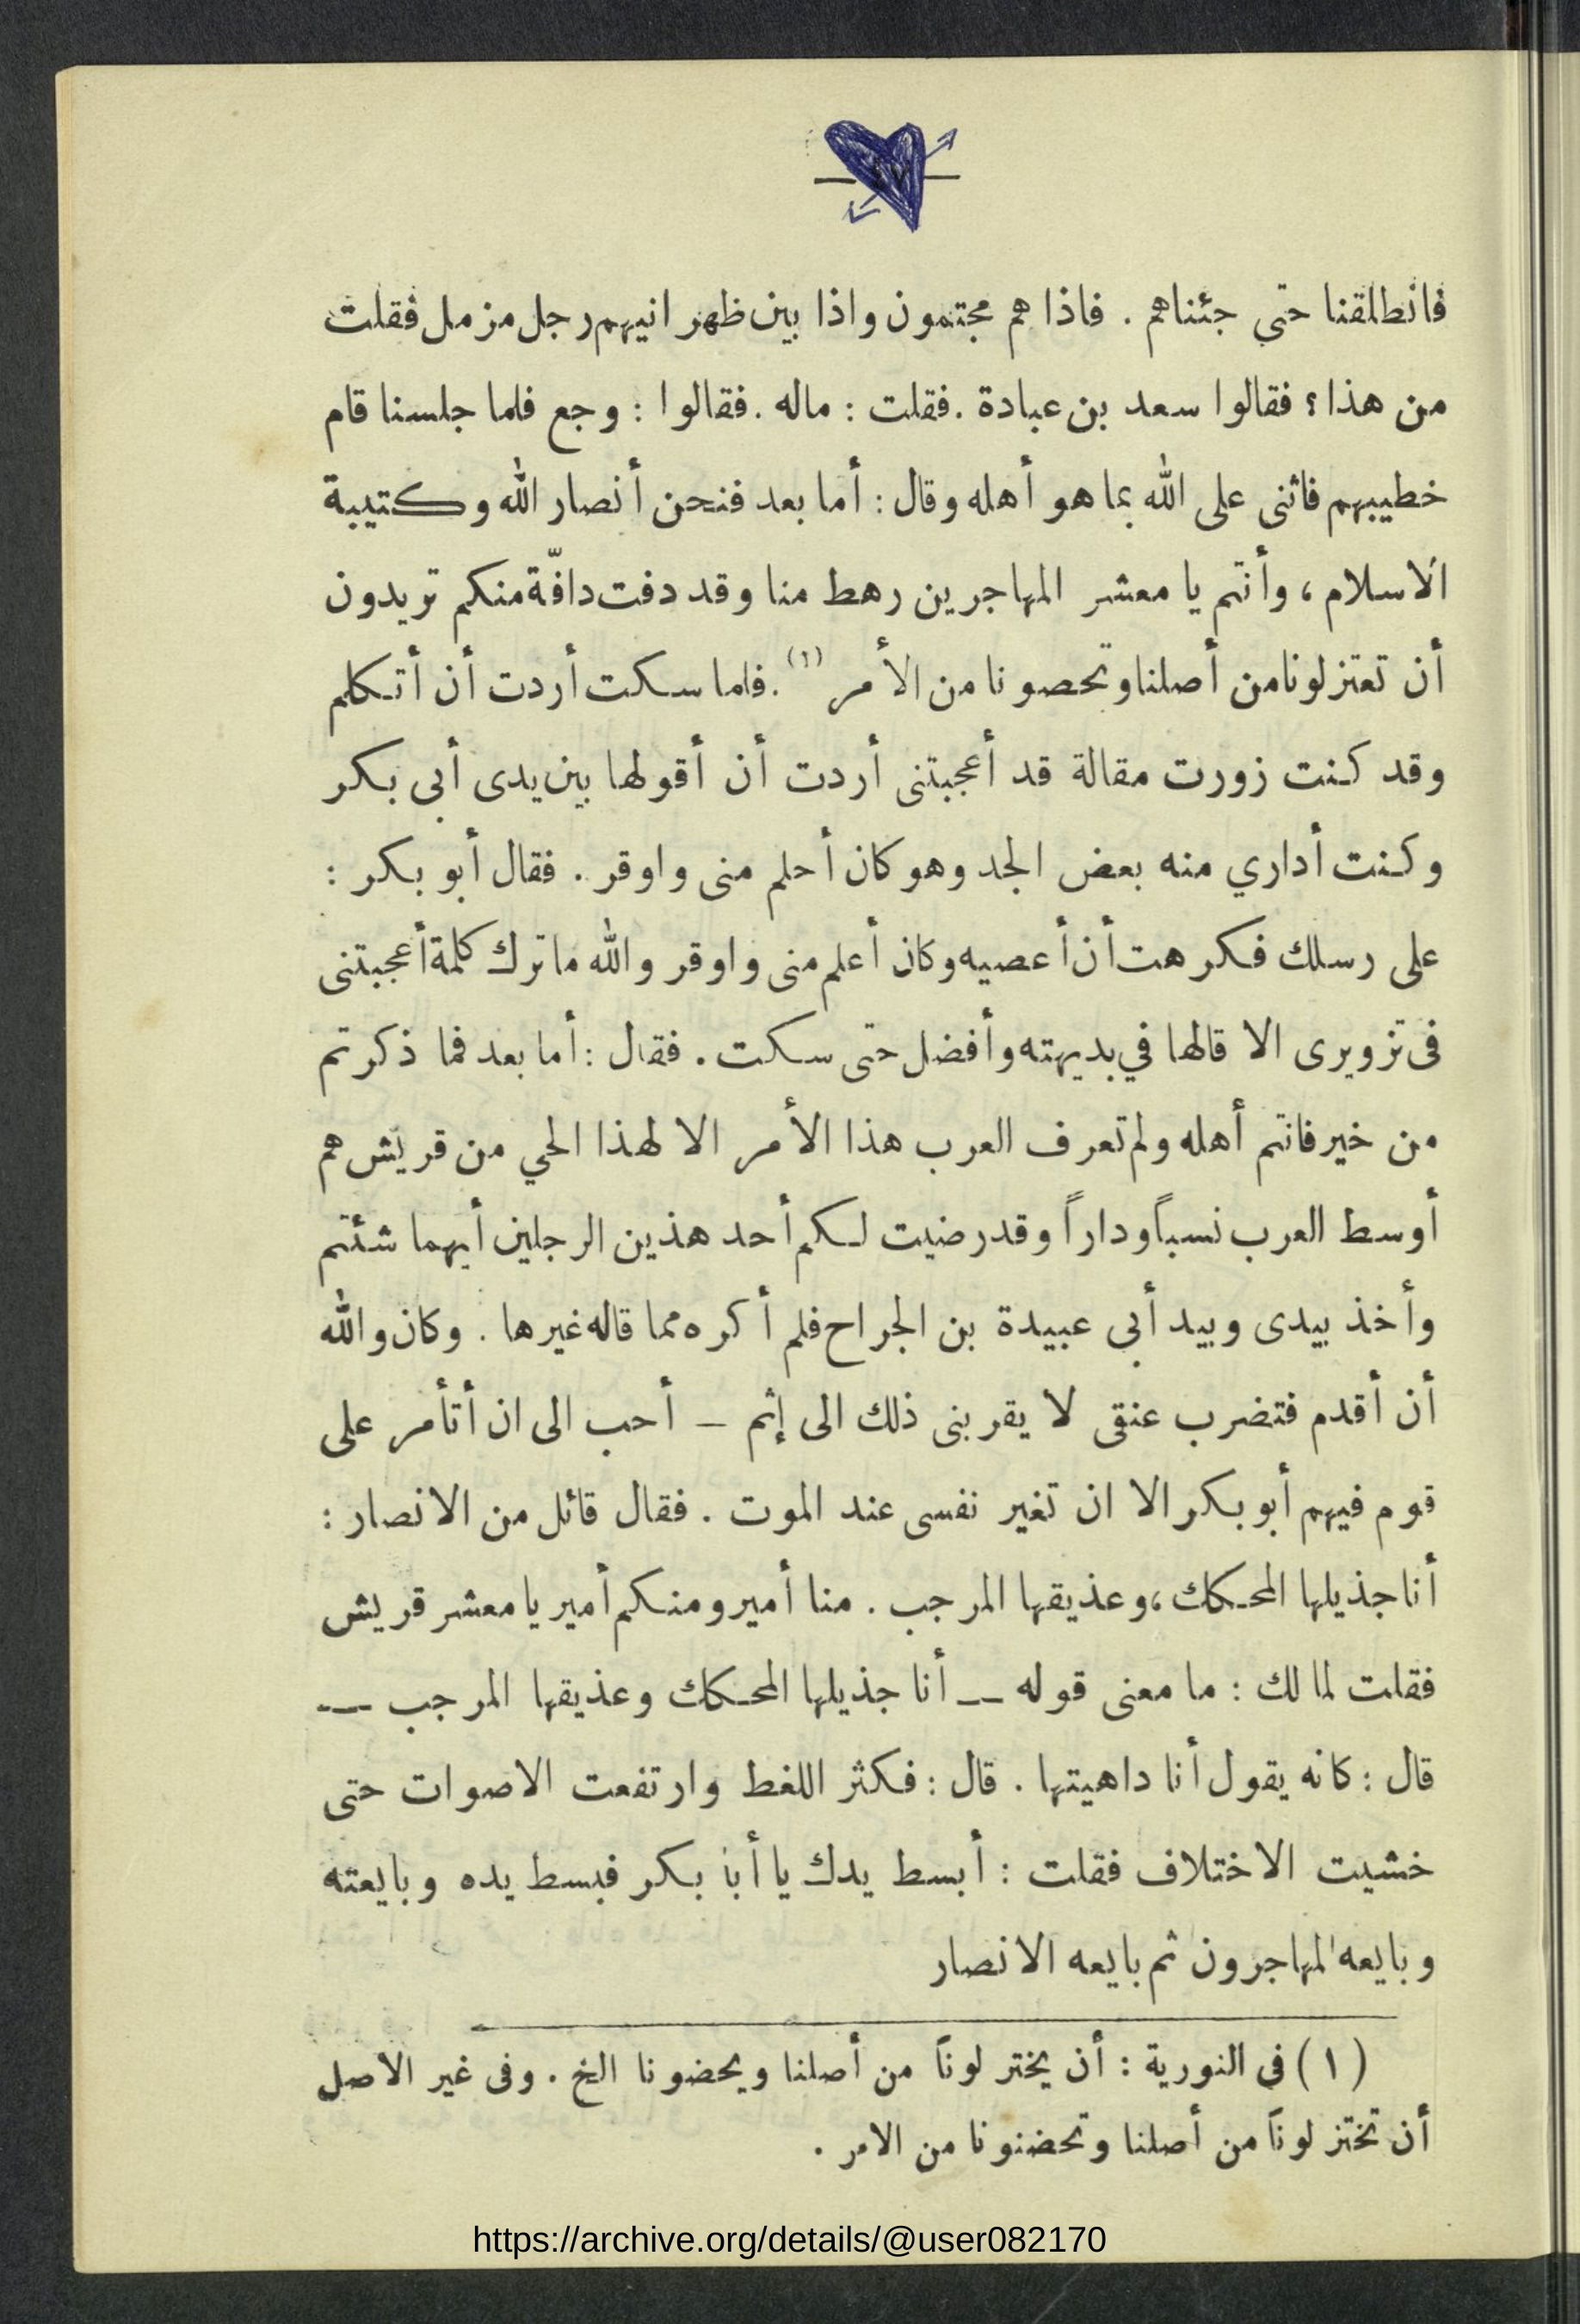 فانطلقنا حتى جئناهم . فاذا هم مجتمعون واذا بين ظهر انيهم رجل مزمل فقلت
من هذا ؟ فقالوا سعد بن عبادة . فقلت : ماله . فقالوا : وجع فلما جلسنا قام
خطيبهم فاثنى على الله بما هو أهله وقال : أما بعد فنحن أنصار الله وكتيبة
الاسلام ، وأنتم يا معشر المهاجرين رهط منا وقد دفت دافّة منكم تريدون
أن تعتزلونا من أصلنا وتحصونا من الأمر (١) . فلما سكت أردت أن أتكلم
وقد كنت زورت مقالة قد أعجبتنى أردت أن أقولها بين يدى أبى بكر
وكنت أداري منه بعض الجد وهو كان أحلم منى واوقر . فقال أبو بكر :
على رسلك فكرهت أن أعصيه وكان أعلم منى واوقر والله ما ترك كلمة أعجبتنى
فى تزويرى الا قالها في بديهته وأفضل حتى سكت . فقال : أما بعد فما ذكرتم
من خير فانتم أهله ولم تعرف العرب هذا الأمر الا لهذا الحي من قريش هم
أوسط العرب نسباً وداراً وقد رضيت لكم أحد هذين الرجلين أيهما شئتم
وأخذ بيدى وبيد أبى عبيدة بن الجراح فلم أكره مما قاله غيرها . وكان والله
أن أقدم فتضرب عنقى لا يقربنى ذلك الى إثم – أحب الى ان أتأمر على
قوم فيهم أبو بكر الا ان تغير نفسى عند الموت . فقال قائل من الانصار :
أنا جذيلها المحكك ، وعذيقها المرجب . منا أمير ومنكم أمير يا معشر قريش
فقلت لمالك : ما معنى قوله — أنا جذيلها المحكك وعذيقها المرجب —
قال : كانه يقول أنا داهيتها . قال : فكثر اللغط وارتفعت الاصوات حتى
خشيت الاختلاف فقلت : أبسط يدك يا أبا بكر فبسط يده وبايعته
وبايعه المهاجرون ثم بايعه الانصار
(١) فى النورية : أن يختر لونا من أصلنا ويحضونا الخ . وفى غير الاصل
أن تختزلونا من أصلنا وتحضنونا من الامر .
https://archive.org/details/@user082170